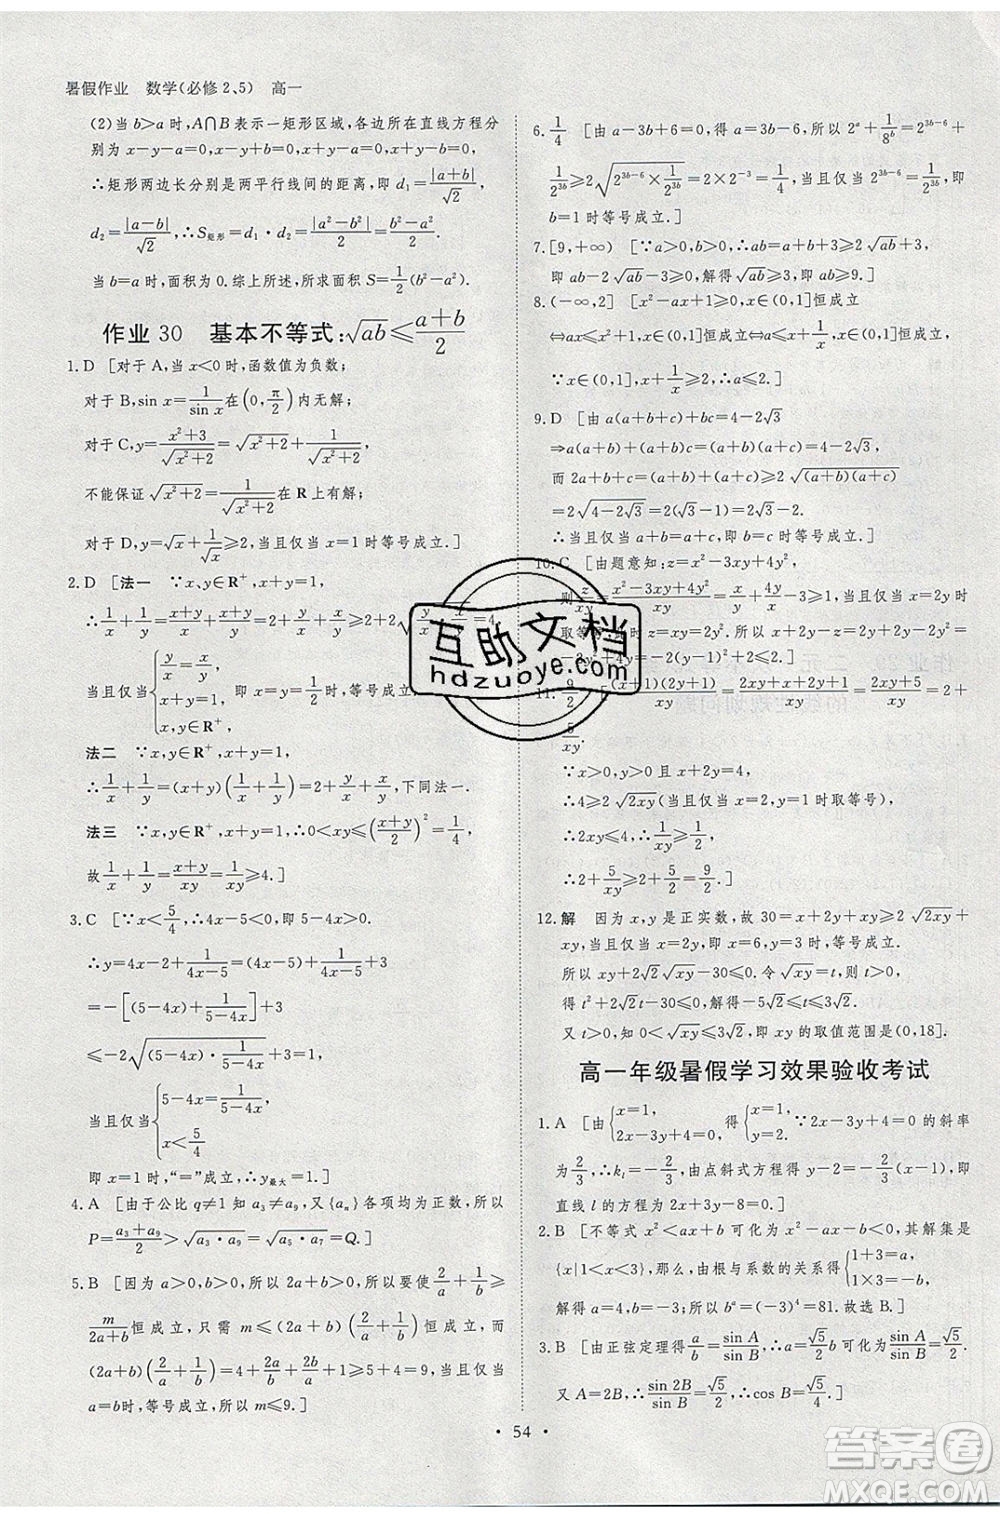 暑假作业 数学(必修2、5) 高一
(2)当 b>a 时,A∩B 表示一矩形区域,各边所在直线方程分
别为 x-y-a=0,x-y+a=0,x+y-b=0,x+y+b=0,
∴矩形两边长分别是两平行线间的距离,即 d₁=|a+b|/√2,
d₂=|a-b|/√2,∴S矩形=d₁·d₂=|a²-b²|/2=(b²-a²)/2.
当 b=a 时,面积为 0.综上所述,面积 S=1/2(b²-a²).
作业 30 基本不等式:√ab≤(a+b)/2
1.D [对于 A,当 x<0 时,函数值为负数;
对于 B,sin x=1/sin x 在(0,π/2)内无解;
对于 C,y=(x²+3)/√(x²+2)=√(x²+2)+1/√(x²+2),
不能保证√(x²+2)=1/√(x²+2)在 R 上有解;
对于 D,y=√x+1/√x≥2,当且仅当 x=1 时,等号成立.]
2.D [法一 ∵x,y∈R⁺,x+y=1,
∴1/x+1/y=(x+y)/x+(x+y)/y=2+y/x+x/y≥2+2√(y/x·x/y)=4,
当且仅当{y/x=x/y, x+y=1,即 x=y=1/2时,取等号.
法二 ∵x,y∈R⁺,x+y=1,
∴1/x+1/y=(x+y)(1/x+1/y)=2+y/x+x/y,下同法一.
法三 ∵x,y∈R⁺,x+y=1,∴0<xy≤((x+y)/2)²=1/4,
故1/x+1/y=(x+y)/xy=1/xy≥4.]
3.C [∵x<5/4,∴4x-5<0,即 5-4x>0,
∴y=4x-2+1/(4x-5)=4x-5+1/(4x-5)+3
=-[(5-4x)+1/(5-4x)]+3
≤-2√((5-4x)·1/(5-4x))+3=1,
当且仅当{5-4x=1/(5-4x), x<5/4
即 x=1 时,“=”成立,∴y最大=1.]
4.A [由于公比 q≠1 知 a₃≠a₉,又{aₙ}各项均为正数,所以
P=(a₃+a₉)/2>√(a₃·a₉)=√(a₅·a₇)=Q.]
5.B [因为 a>0,b>0,所以 2a+b>0,所以要使2/a+1/b≥
m/(2a+b)恒成立,只需 m≤(2a+b)(2/a+1/b)恒成立,而
(2a+b)(2/a+1/b)=4+2a/b+2b/a+1≥5+4=9,当且仅当
a=b时,等号成立,所以 m≤9.]
6.1/4 [由 a-3b+6=0,得 a=3b-6,所以 2ᵃ+1/8ᵇ=2³ᵇ⁻⁶+
1/2³ᵇ≥2√(2³ᵇ⁻⁶×1/2³ᵇ)=2×2⁻³=1/4,当且仅当 2³ᵇ⁻⁶=1/2³ᵇ,即
b=1 时等号成立.]
7.[9,+∞) [∵a>0,b>0,∴ab=a+b+3≥2√ab+3,
即 ab-2√ab-3≥0,解得√ab≥3,即 ab≥9.]
8.(-∞,2] [x²-ax+1≥0,x∈(0,1]恒成立
⇔ax≤x²+1,x∈(0,1]恒成立⇔a≤x+1/x,x∈(0,1]恒
成立.∵x∈(0,1],x+1/x≥2,∴a≤2.]
9.D [由 a(a+b+c)+bc=4-2√3
⇒a(a+b)+(a+b)c=(a+b)(a+c)=4-2√3,
而 2a+b+c=(a+b)+(a+c)≥2√((a+b)(a+c))
=2√(4-2√3)=2√3-2.
当且仅当 a+b=a+c,即 b=c 时等号成立.]
10.C [由题意知:z=x²-3xy+4y²,
则z/xy=(x²-3xy+4y²)/xy=x/y+4y/x-3≥1,当且仅当 x=2y 时
取等号,此时 z=xy=2y².
-z=2y+2y-2y²=-2(y-1)²+2≤2.]
11.9/2 [(x+1)(2y+1)/xy=(2xy+x+2y+1)/xy=(2xy+5)/xy=2+
5/xy.
∵x>0,y>0,x+2y=4,
∴4≥2√2xy(当且仅当 x=2y=2 时取等号),
∴2xy≤4,1/xy≥1/2,
∴2+5/xy≥2+5/2=9/2.]
12.解 因为 x,y 是正实数,故 30=x+2y+xy≥2√2xy+
xy,当且仅当 x=2y,即 x=6,y=3 时,等号成立.
所以 xy+2√2·√xy-30≤0.令√xy=t,则 t>0,
得 t²+2√2t-30≤0,解得-5√2≤t≤3√2.
又 t>0,知 0<√xy≤3√2,即 xy 的取值范围是(0,18].
高一年级暑假学习效果验收考试
1.A [由{x=1, 2x-3y+4=0,得{x=1, y=2.∵2x-3y+4=0 的斜率
为2/3,∴kₗ=-2/3,由点斜式方程得 y-2=-2/3(x-1),即
直线 l 的方程为 2x+3y-8=0.]
2.B [不等式 x²<ax+b 可化为 x²-ax-b<0,其解集是
{x|1<x<3},那么,由根与系数的关系得{1+3=a, 1×3=-b,
解得 a=4,b=-3,所以 bᵃ=(-3)⁴=81.故选 B.]
3.B [由正弦定理a/b=sin A/sin B,∴a=√5/2 b可化为sin A/sin B=√5/2.
又 A=2B,∴sin 2B/sin B=√5/2,∴cos B=√5/4.]
• 54 •
互助文档
hdzuoye.com
答案圈
MXQE.COM